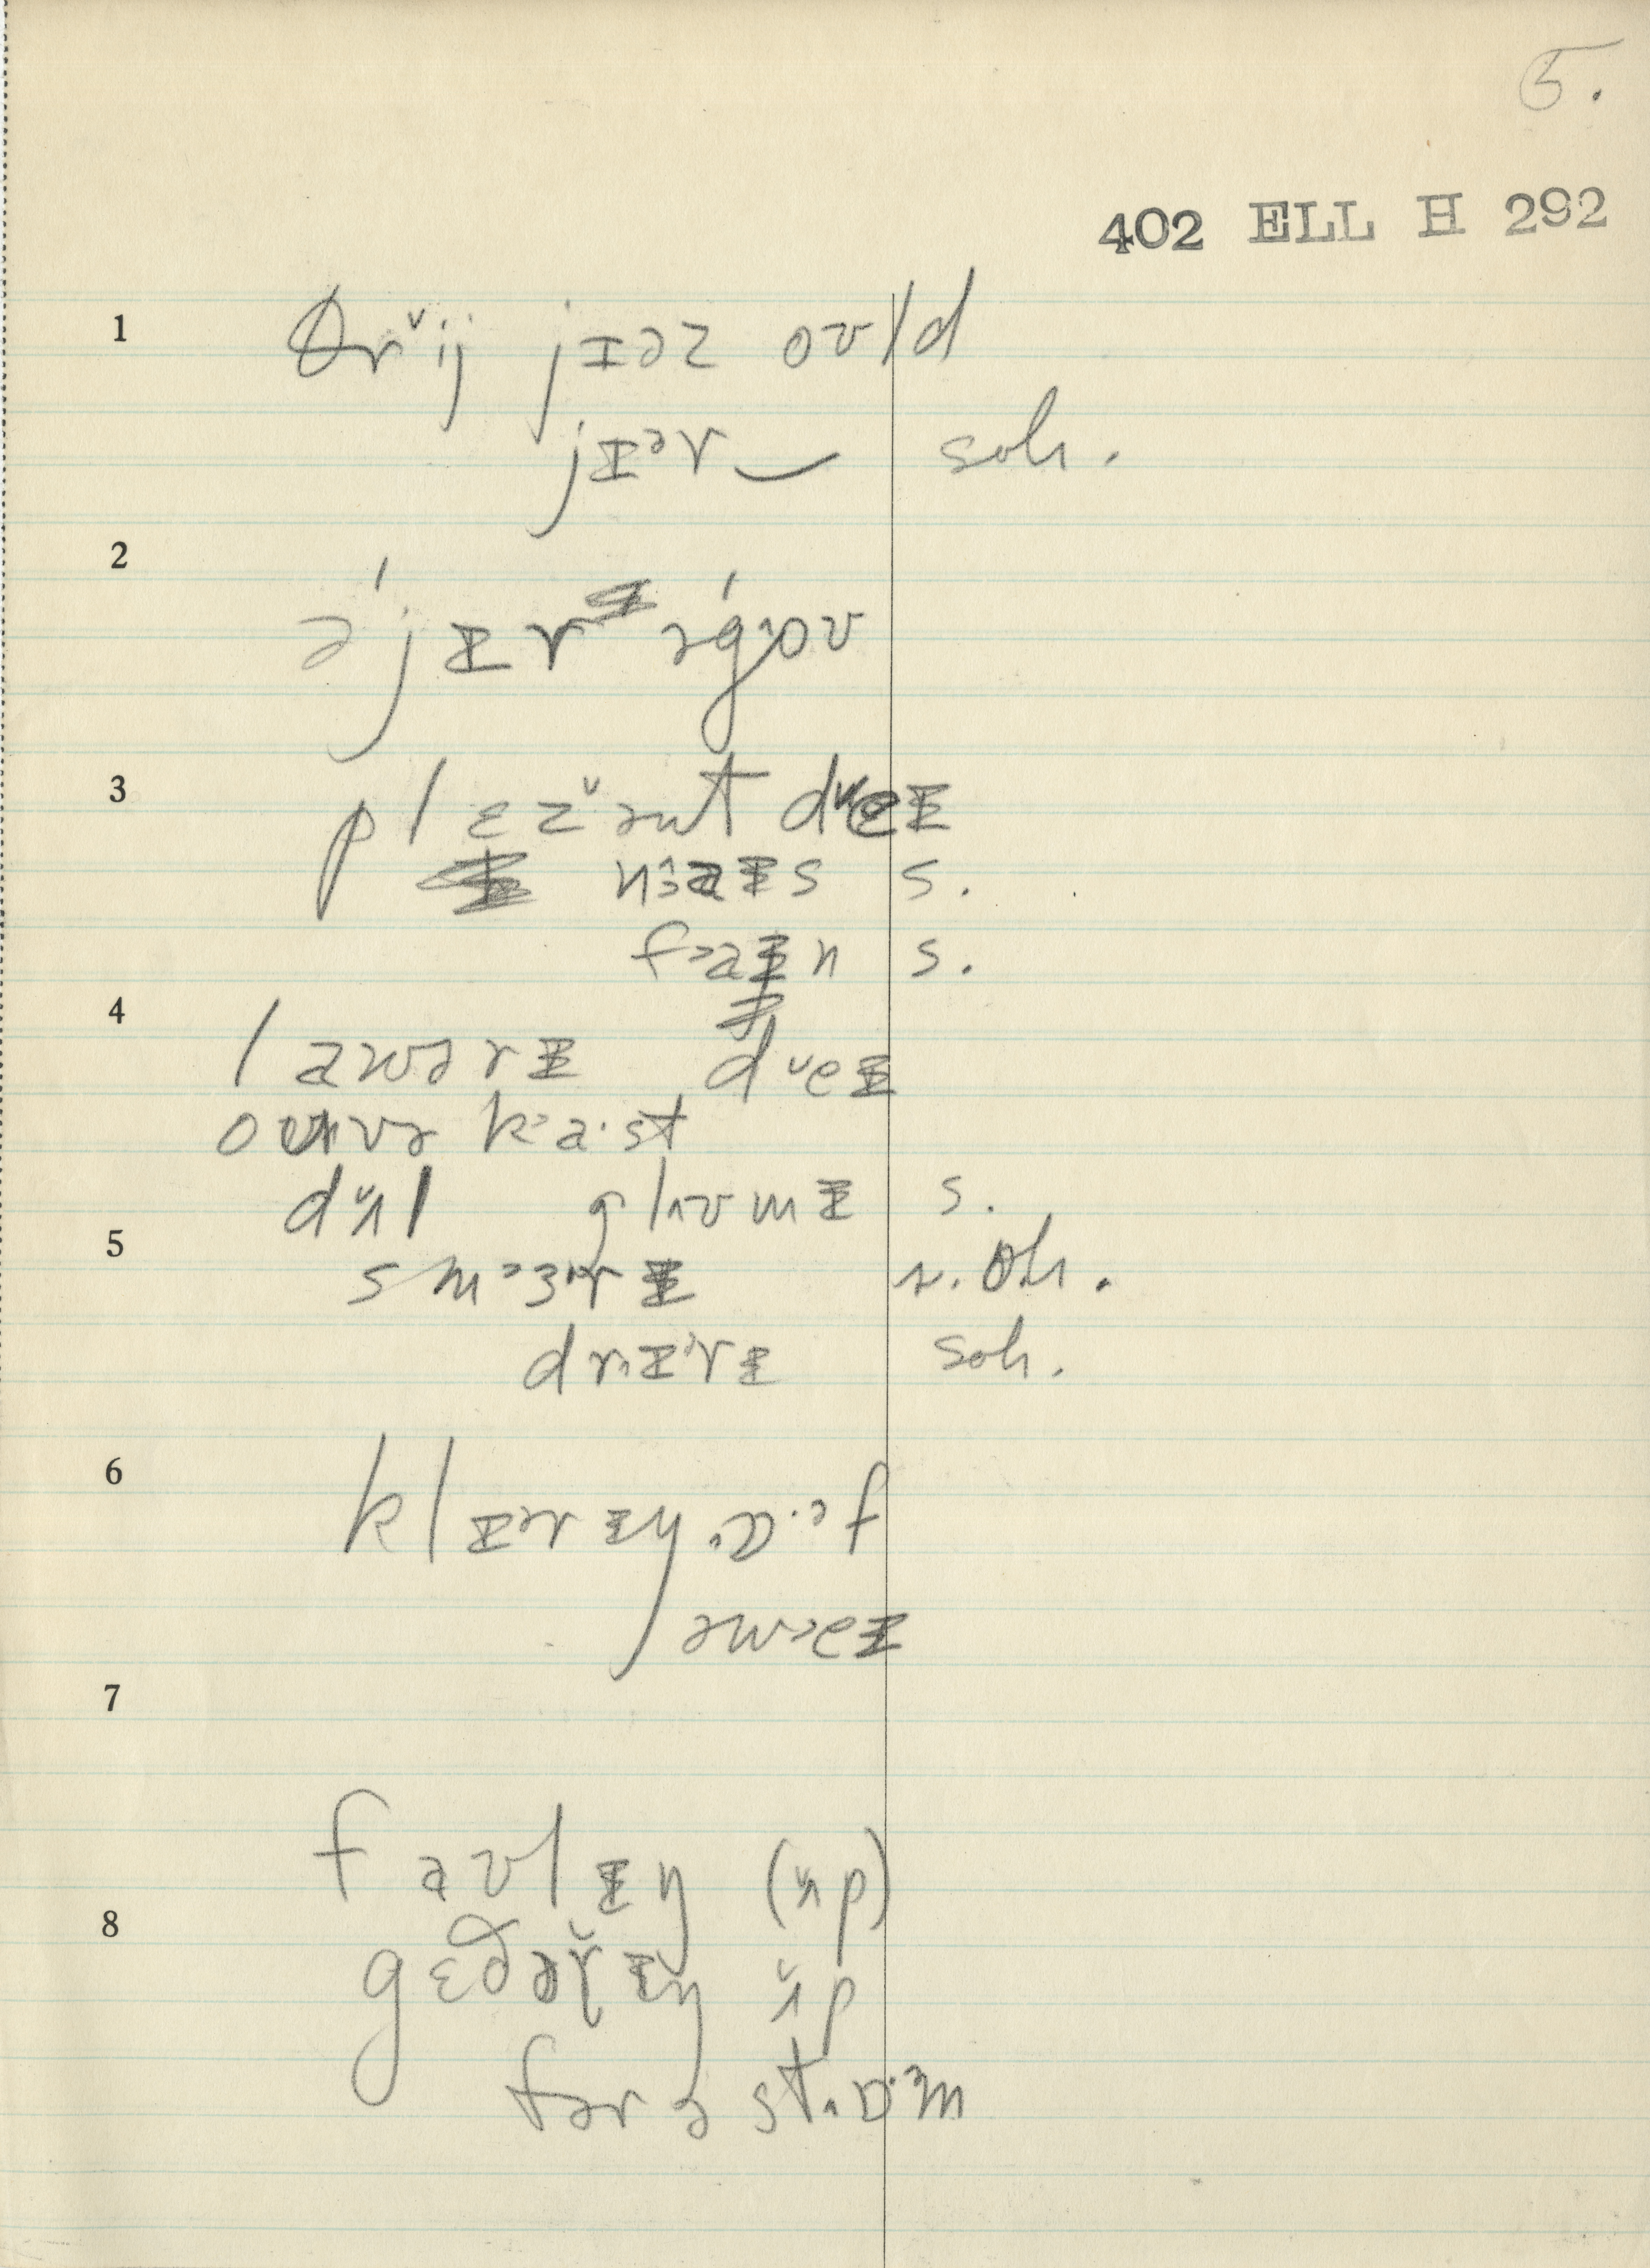 5.
402 ELL H 292
1 θr˅ij jɪəz oʊld
jɪᵊr ‿ soh.
2 ə'jɪr əg˄oʊ
3 plɛz˅ənt d˅eɪ
n˃aɪs s.
f˃aɪn s.
4 laʊərɪ d˅eɪ
oʊvə k˃a·st
d˅ʌl gl˄ʊmɪ s.
5 sm˃ɜ˞rɪ s. oh.
dr˄ɪᵊrɪ soh.
6 klɪərɪŋ ˄ɒ·ᵊf
əw˃eɪ
7
faʊlɪŋ (˅ʌp)
8 gɛðər˅ɪŋ ˅ʌp
fər ə st˄ɒ·ᵊm